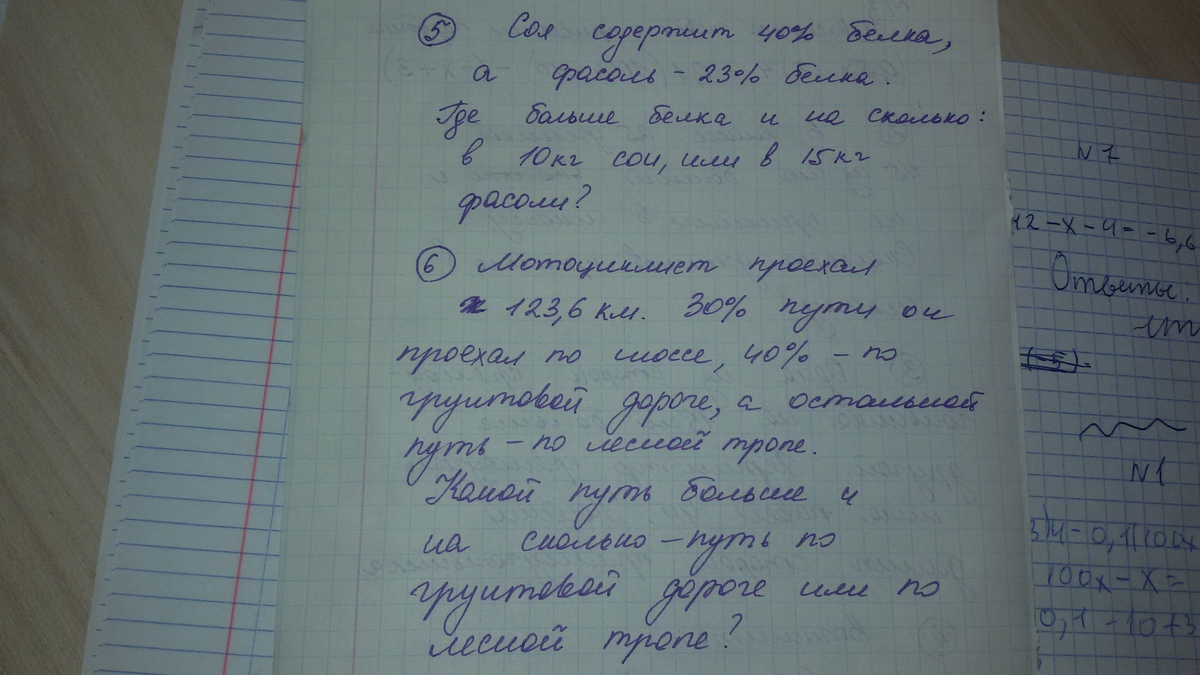 ⑤ Соя содержит 40% белка,
а фасоль - 23% белка.
Где больше белка и на сколько:
в 10 кг сои, или в 15 кг
фасоли?
⑥ Мотоциклист проехал
123,6 км. 30% пути он
проехал по шоссе, 40% - по
грунтовой дороге, а остальной
путь - по лесной тропе.
Какой путь больше и
на сколько - путь по
грунтовой дороге или по
лесной тропе?
N 7
12 - x - 4 = - 6,6
Ответы:
(-5)
N1
3) 4 - 0,1(100x
100x - x =
0,1 - 10 + 3